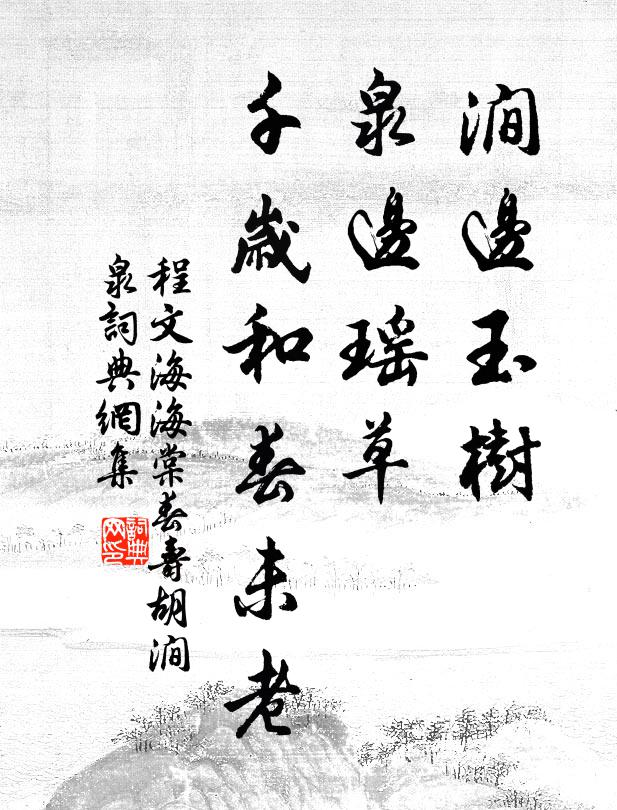 澗邊玉樹
泉邊瑶草
千歲和春未老
程文海海棠春壽胡澗
泉詞典網集
詞典
网印